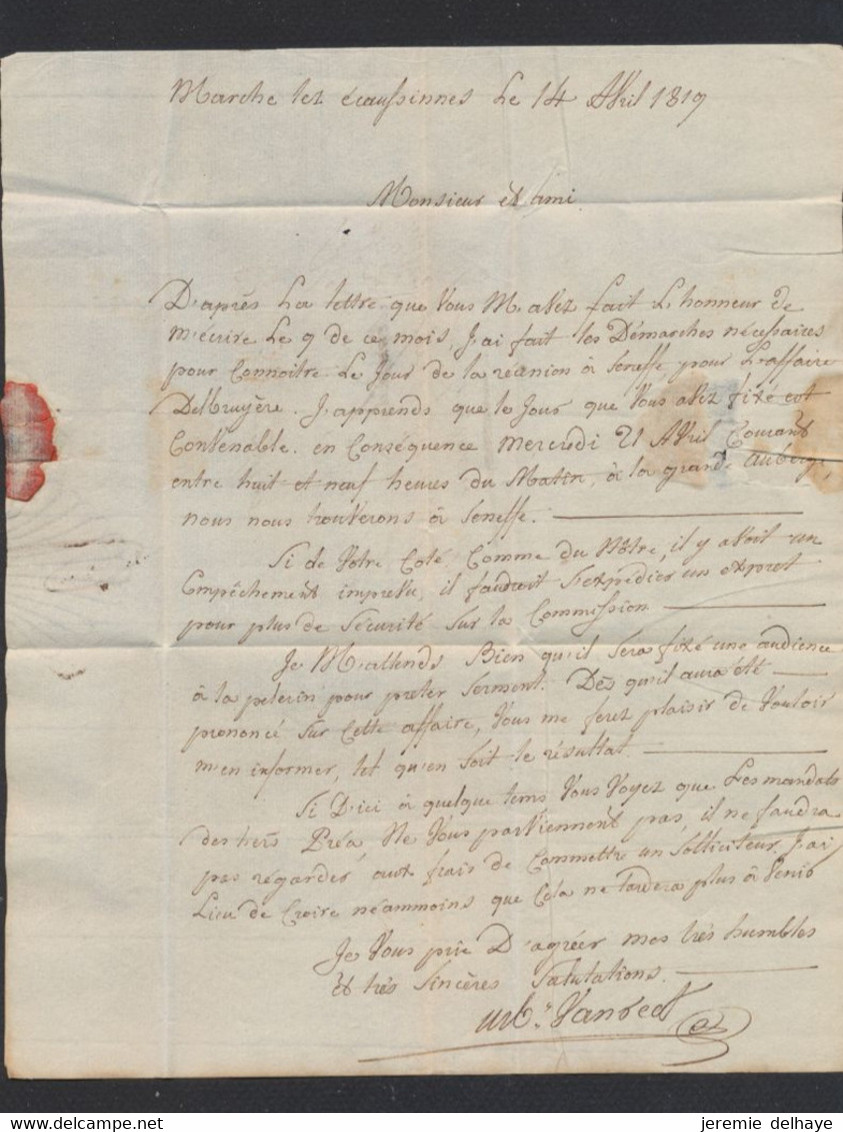 Marche lez écaussinnes Le 14 Avril 1819
Monsieur et ami
D'après La lettre que Vous M'avez fait L'honneur de
m'écrire Le 9 de ce mois, J'ai fait les Démarches nécessaires
pour Connoitre Le Jour de la réunion à Seneffe pour L'affaire
Delbruyère. J'apprends que le Jour que Vous avez fixé est
Contenable. en Conséquence Mercredi 21 Avril Courant
entre huit et neuf heures du Matin, à la grande auberge,
nous nous trouverons à Seneffe.
Si de Votre Coté Comme du Nôtre, il y avoit un
Empêchement imprevu, il faudroit S'expédier un exprest
pour plus de Sécurité Sur la Commission
Je M'attends Bien qu'il Sera fixé une audience
à la pelerin pour preter Serment. Dès qu'il aura été
prononcé Sur Cette affaire, Vous me ferez plaisir de Vouloir
m'en informer, tel qu'en Soit le résultat
Si D'ici à quelque tems Vous Voyez que Les mandats
des hers Préa, Ne Vous parviennent pas, il ne faudra
pas regarder aux frais de Commettre un Solliciteur. J'ai
Lieu de Croire néammoins que Cela ne Tardera plus à Venir
Je Vous prie D'agréer mes très humbles
et très Sincères Salutations.
urb.
jeremie delhaye